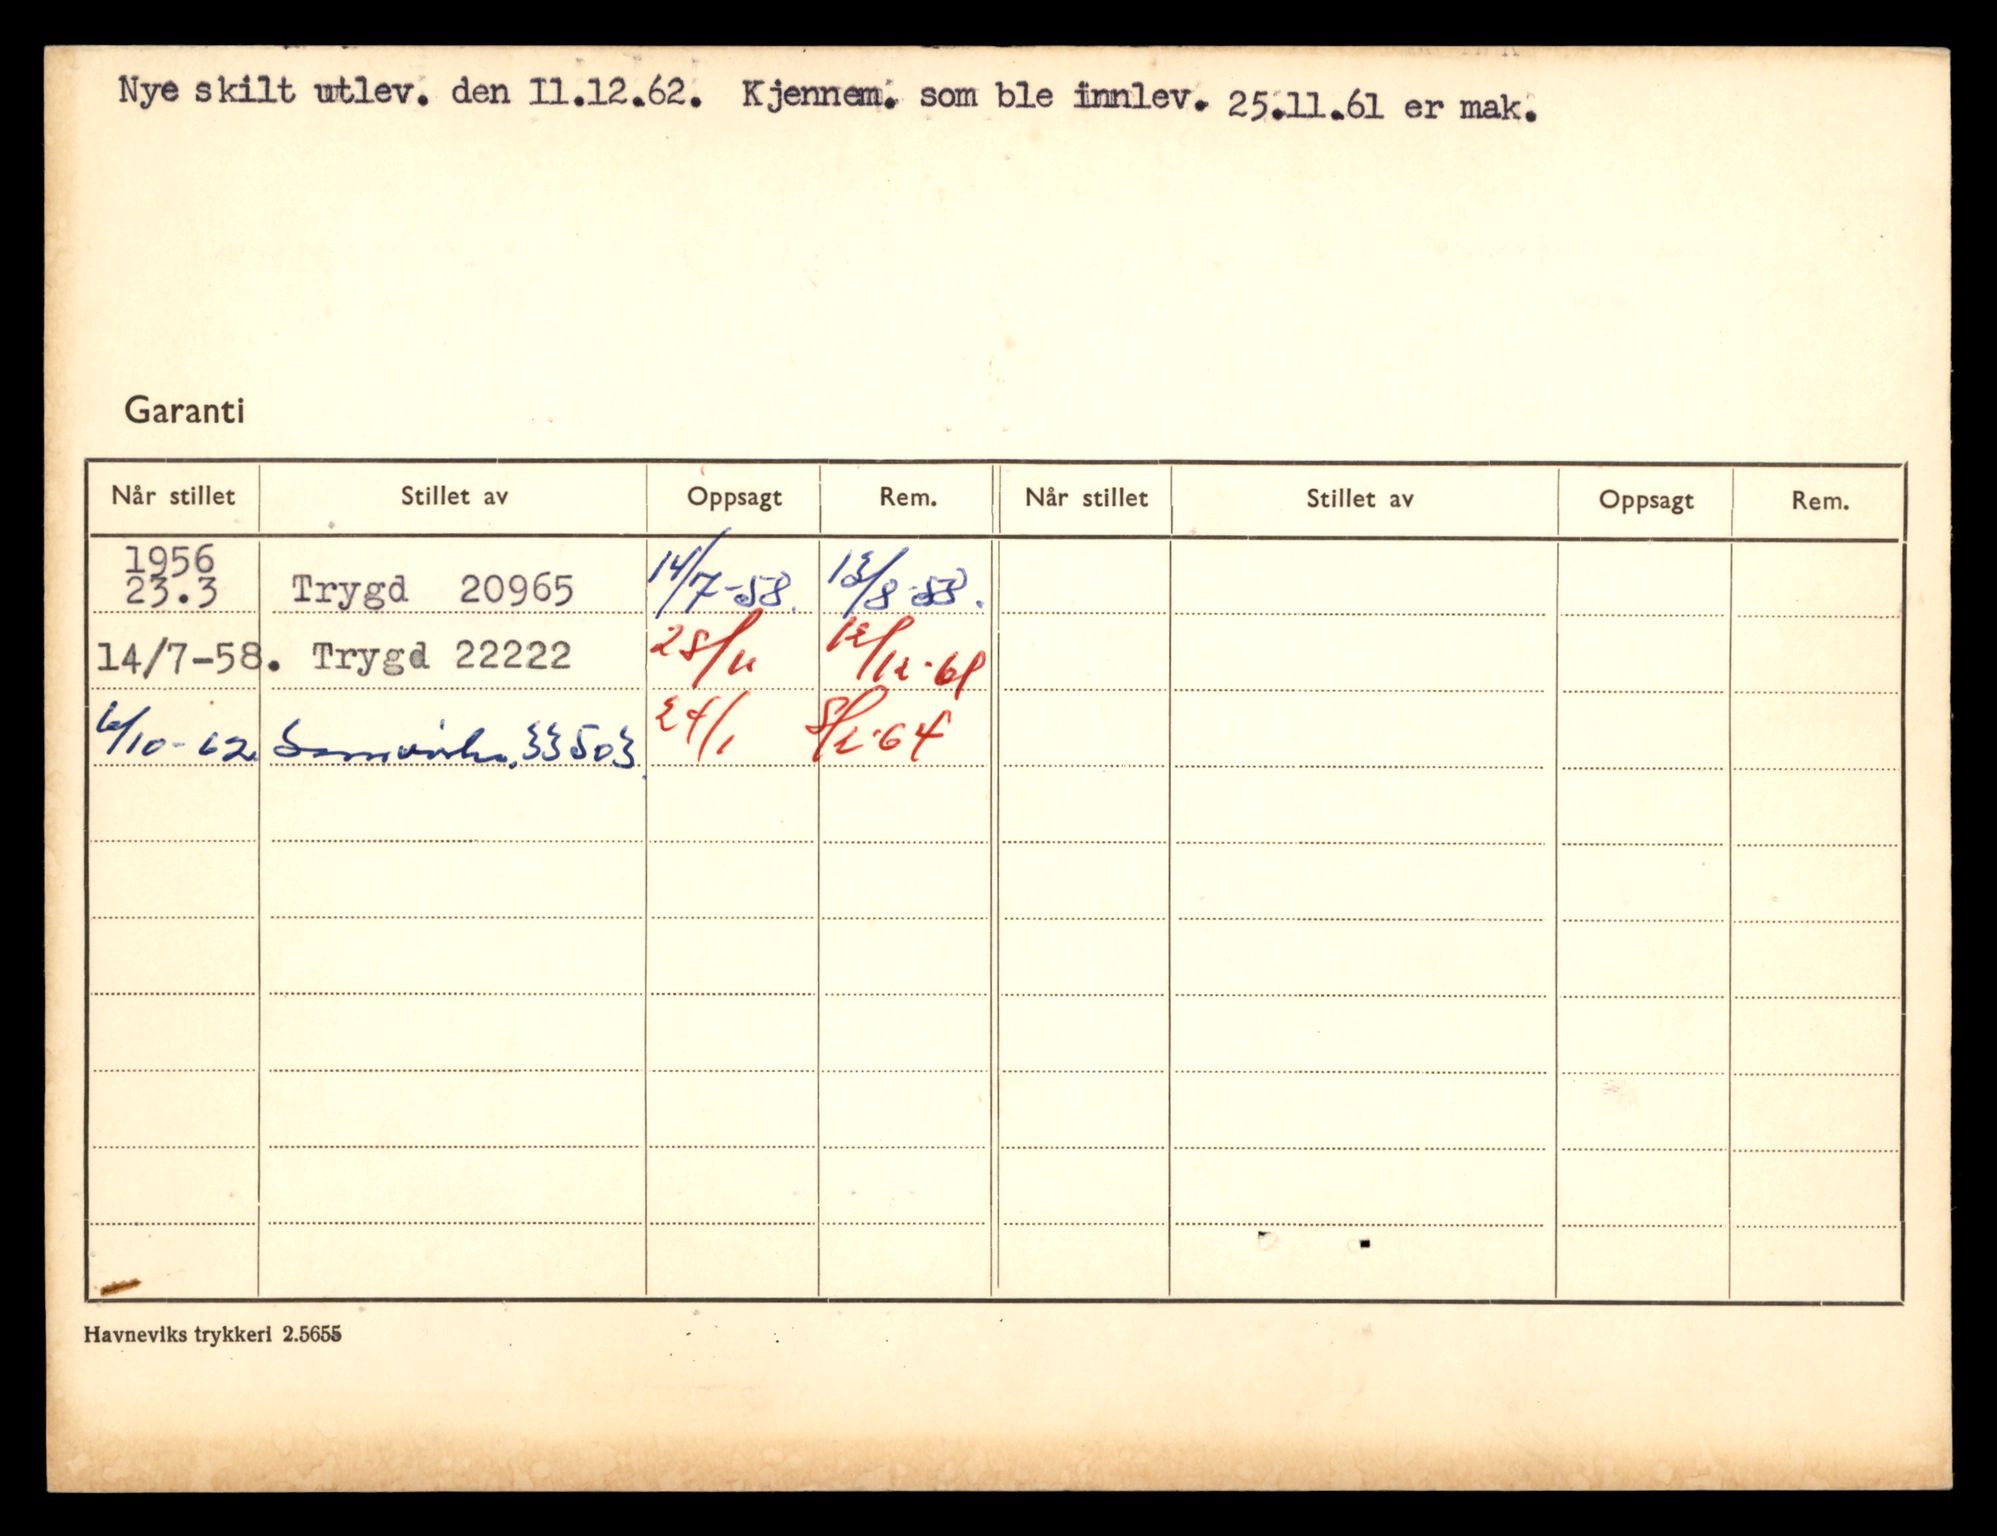 Nye skilt utlev. den 11.12.62. Kjennem. som ble innlev. 25.11.61 er mak.
Garanti
Når stillet Stillet av Oppsagt Rem. Når stillet Stillet av Oppsagt Rem.
1956
23.3 Trygd 20965 14/7-58. 13/8-58.
14/7-58. Trygd 22222 25/11 12/12-61
/10-62 Samvirke. 33503. 24/1 8/2-64
Havneviks trykkeri 2.5655